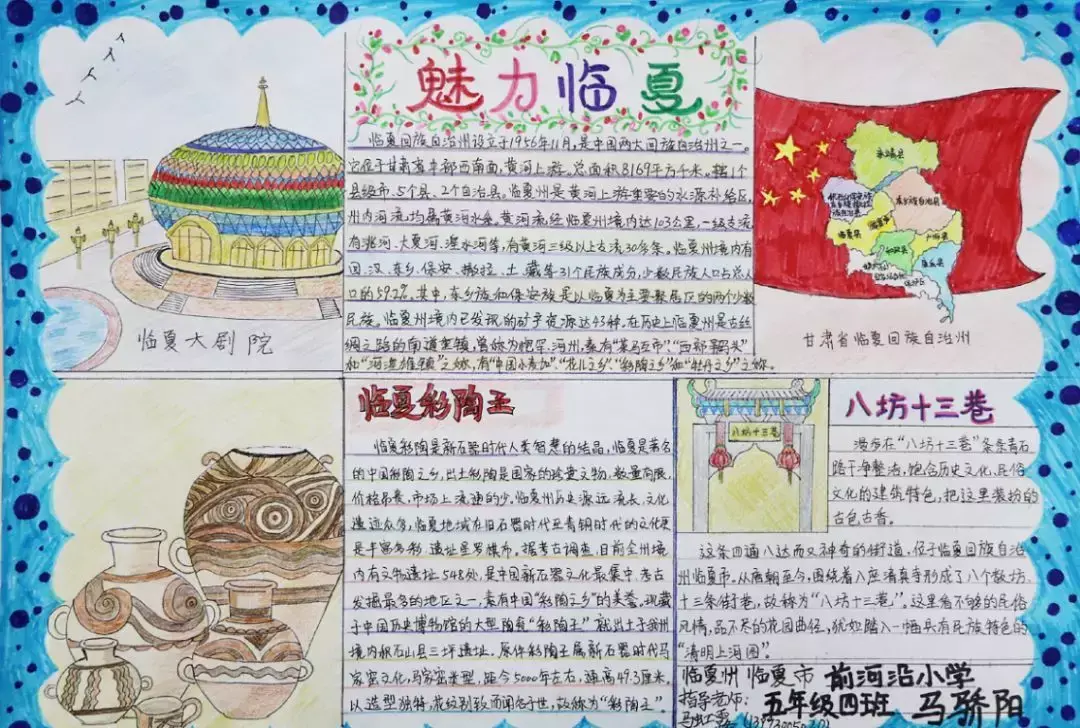 魅力临夏
临夏回族自治州设立于1956年11月,是中国两大回族自治州之一。
它位于甘肃省中部西南面,黄河上游。总面积8169平方千米。辖1个
县级市、5个县、2个自治县。临夏州是黄河上游重要的水源补给区,
州内河流均属黄河水系。黄河流经临夏州境内达103公里,一级支流
有洮河、大夏河、湟水河等,有黄河三级以上支流30多条。临夏州境内有
回、汉、东乡、保安、撒拉、土、藏等31个民族成分,少数民族人口占总人
口的59.2%。其中,东乡族和保安族是以临夏为主要聚居区的两个少数
民族。临夏州境内已发现的矿产资源达43种。在历史上临夏州是古丝
绸之路的南道重镇,曾称为枹罕、河州,素有“茶马互市”、“西部旱码头”
和“河湟雄镇”之称,有“中国小麦加”、“花儿之乡”、“彩陶之乡”和“牡丹之乡”之称。
临夏大剧院
永靖县
东乡族自治县
临夏县
临夏市
广河县
和政县
康乐县
甘肃省临夏回族自治州
临夏彩陶王
临夏彩陶是新石器时代人类智慧的结晶,临夏是著名
的中国彩陶之乡,出土彩陶是国家的珍贵文物,数量有限,
价格昂贵,市场上流通的少。临夏州历史源远流长,文化
遗迹众多,临夏地域在旧石器时代至青铜时代的文化更
是丰富多彩,遗址星罗棋布。据考古调查,目前全州境
内有文物遗址548处,是中国新石器文化最集中、考古
发掘最多的地区之一,素有中国“彩陶之乡”的美誉。现藏
于中国历史博物馆的大型陶瓮“彩陶王”就出土于我州
境内积石山县三坪遗址。原件彩陶王属新石器时代马
家窑文化,马家窑类型,距今5000年左右,通高49.3厘米。
以造型独特,花纹别致而闻名于世,故称为“彩陶王”。
八坊十三巷
八坊十三巷
漫步在“八坊十三巷”条条青石
路干净整洁,饱含历史文化、民俗
文化的建筑特色,把这里装扮的
古色古香。
这条四通八达而又神奇的街道,位于临夏回族自治
州临夏市。从唐朝至今,围绕着八座清真寺形成了八个教坊,
十三条街巷,故称为“八坊十三巷”。这里看不够的民俗
风情,品不尽的花园曲径,犹如踏入一幅具有民族特色的
“清明上河图”。
临夏州 临夏市 前河沿小学
指导老师:
五年级四班 马骄阳